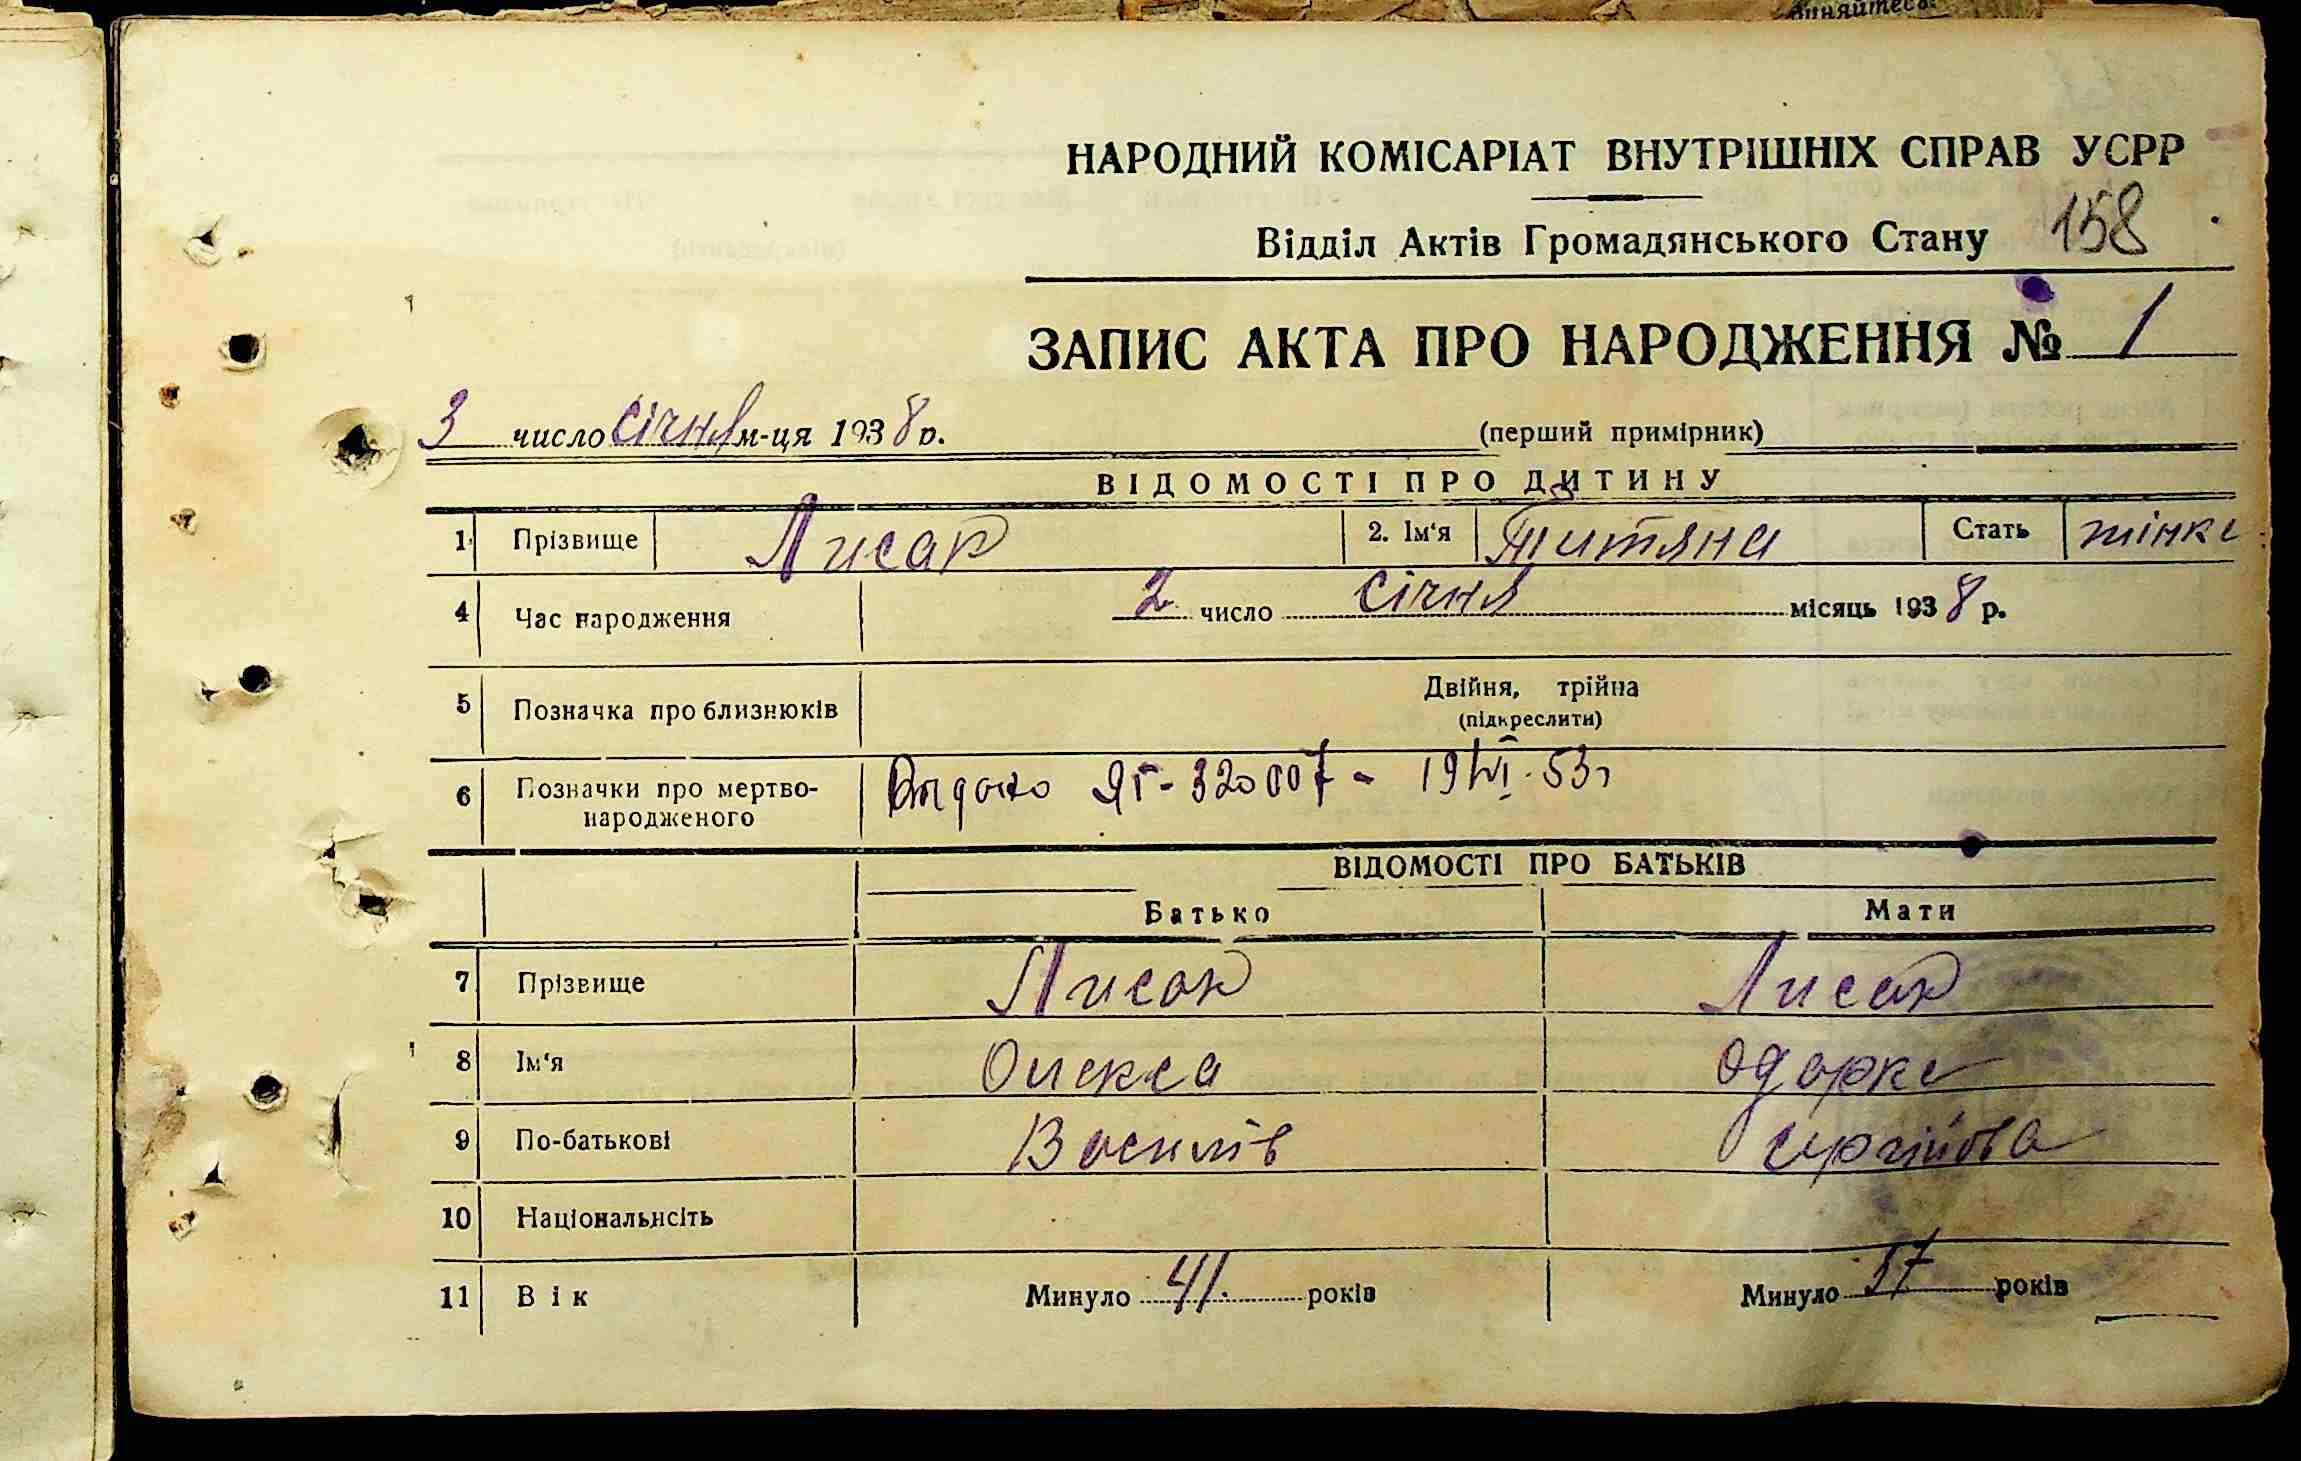 иняйтесь!
НАРОДНИЙ КОМІСАРІАТ ВНУТРІШНІХ СПРАВ УСРР
Відділ Актів Громадянського Стану 158
ЗАПИС АКТА ПРО НАРОДЖЕННЯ № 1
3 число січня м-ця 1938 р. (перший примірник)
ВІДОМОСТІ ПРО ДИТИНУ
1 Прізвище Лисак 2. Ім'я Титяна Стать жінка
4 Час народження 2 число січня місяць 1938 р.
5 Позначка про близнюків Двійня, трійна
(підкреслити)
6 Позначки про мертво-
народженого Видано ЯГ-320007 - 19/VI-53г
ВІДОМОСТІ ПРО БАТЬКІВ
Батько Мати
7 Прізвище Лисак Лисак
8 Ім'я Олекса Одарка
9 По-батькові Василів Сергійова
10 Національнсіть
11 Вік Минуло 41 років Минуло 37 років